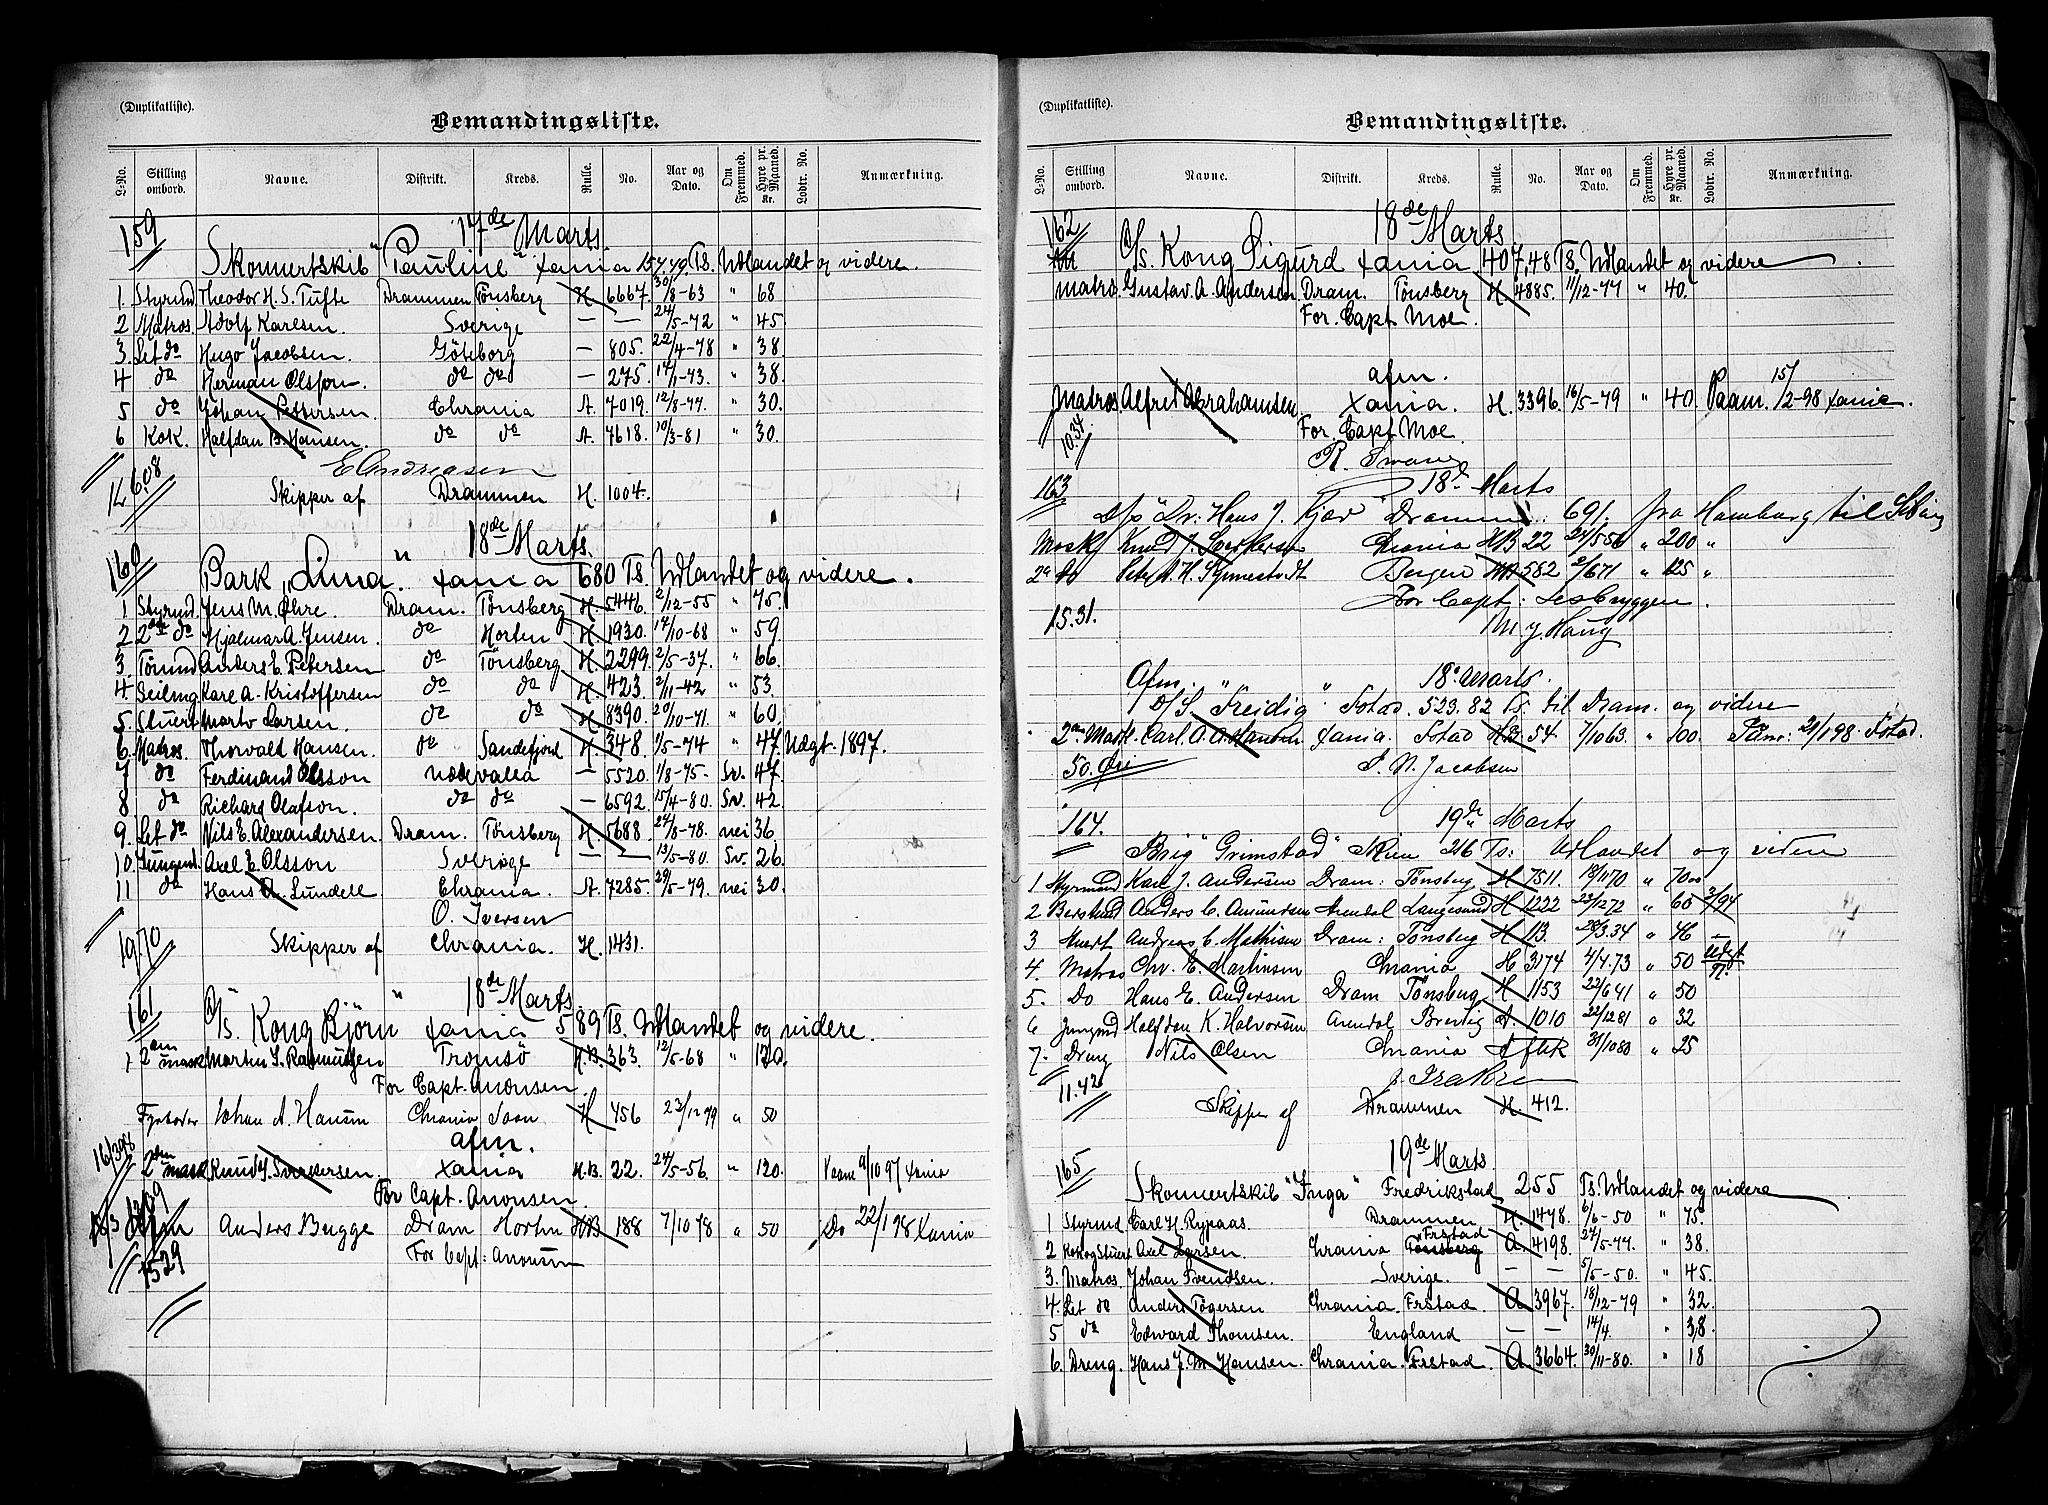 (Duplikatliste).
Bemandingsliste.
L-No. Stilling ombord. Navne. Distrikt. Kreds. Rulle. No. Aar og Dato. Om Fremmed. Hyre pr. Maaned. Kr. Lodtr. No. Anmærkning.
159 17de Marts.
Skonnertskib "Pauline" Xania 157,49 Ts. Udlandet og videre.
1. Styrmd Theodor H. S. Tufte Drammen Tönsberg H. 6667. 30/8-63 " 68
2 Matros. Adolf Karlsen. Sverige — — 24/5-72 " 45
3. Let do Hugo Jacobsen. Göteborg — 805. 22/4-78 " 38
4 do Herman Olsson. do do — 275. 14/1-73. " 38.
5 do Johan Pettersen. Chrania A. 7019. 12/8-77. " 30.
6 Kok. Halfdan B. Hansen. do do A. 7618. 10/3-81 " 30.
E Andreasen
12 608 Skipper af Drammen H. 1004.
18de Marts.
160 Bark "Luna" Xania 680 Ts. Udlandet og videre.
1 Styrmd. Jens M. Öhre. Dram. Tönsberg H. 5446. 2/12-55 " 75.
2 2den do Hjalmar A. Jensen. do Horten H. 1930. 14/10-68 " 59
3. Tömmd Anders E. Petersen do Tönsberg H. 2299. 2/5-37. " 66.
4. Seilmg Karl A. Kristoffersen do do H. 423. 2/11-42 " 53.
5. Stuert Martv Larsen. do do H. 8390. 20/10-71. " 60.
6. Matros. Thorvald Hansen. do Sandefjord H. 348. 1/5-74 " 47. Udgt. 1897.
7 do Ferdinand Olsson Uddevalla — 5520. 1/8-75. Sv. 47.
8 do Richard Olafson. do do — 6592. 15/4-80. Sv. 42.
9. Let do Nils E. Alexandersen. Dram. Tönsberg H. 5688. 24/8-78. nei 36
10. Jungmd. Axel E. Olsson Sverige — — 13/5-80. Sv. 26.
11 do Hans A. Lundell Chrania. A. 7285. 29/5-79. nei 30.
O. Iversen
1970 Skipper af Chrania. H. 1431.
18de Marts
161 D/S. "Kong Björn" Xania 589 Ts. Udlandet og videre.
1 2den mask Martin S. Rasmussen Tromsö H.B. 363. 12/5-68 " 120.
For Capt. Anonsen.
Fyrböder Johan A. Hansen Chrania Soon H 456 23/12 79 " 50
afm.
16/3 98 2den mask. Knud J. Sverkersen. Xania H.B. 22. 24/5-56. " 120. Paam 9/10 97 Xania
For Capt. Anonsen.
16/3 Anders Bugge Dram Horten HB 188 7/10 78 " 50 Do 22/1 98 Xania
For Capt: Anonsen
1529
(Duplikatliste).
Bemandingsliste.
L-No. Stilling ombord. Navne. Distrikt. Kreds. Rulle. No. Aar og Dato. Om Fremmed. Hyre pr. Maaned. Kr. Lodtr. No. Anmærkning.
162 18de Marts
D/S. Kong Sigurd Xania 407,48 Ts. Udlandet og videre.
Matros Gustav A. Andersen Dram. Tönsberg H. 4885. 11/12-77 " 40.
For. Capt. Moe.
afm.
Matros Alfred Abrahamsen Xania. H. 3396. 16/5-79 " 40. Paam. 15/2-98 Xania.
For. Capt Moe.
10.34. R. Svane
163 18de Marts
D/S "Dr: Hans J. Kjær" Drammen. 691. fra Hamburg til
Mask Knud J. Sverkersen Chrania HB 22 24/5 56 " 200 "
2n Do Peter A. H. Synnestvedt Bergen HB 582 2/6 71 " 125 "
For Capt: Lesbryggen.
15.31. M J. Haug
Afm. 18de Marts.
D/S. "Freidig" Fstad. 523.82 Ts. til Dram. og videre
2den Mask. Carl. A. A. Hansen Xania. Fstad HB 54 7/10 63. " 100. Paam. 21/1 98. Fstad.
50. Öre S. N. Jacobsen
164. 19de Marts
Brig "Grimstad" Skien 216 Ts: Udlandet og videre
1 Styrmand Karl J. Andersen Dram: Tönsberg H 7511. 18/11 70 " 70 00
2 Bestmd Anders C. Amundsen Arendal Langesund H 1222 23/12 72 " 65 2/94
3 Stuert Andreas C. Mathisen Dram: Tönsberg H 113. 28/3.34 " 46 —
4. Matros Chr. E. Martinsen Chrania H 3174 4/4.73 " 50 Udgt 97.
5. Do Hans E. Andersen Dram Tönsberg H 1153 22/6 41 " 50
6 Jungmd Halfdan K. Halvorsen Arendal Brevig A. 1010 22/12 81 " 32
7. Dreng Nils Olsen Chrania A ftk 31/10 80 " 25
11.42
Skipper af Drammen H. 412.
19de Marts
165 Skonnertskib "Inga" Fredrikstad 255 Ts. Udlandet og videre
1 Styrmd Carl H. Rypaas. Drammen H. 1478. 6/6-50 " 75.
2 Kok og Stuert Axel Larsen. Chrania Tönsberg Frstad A. 4198. 27/5-77. " 38.
3. Matros Johan Svendsen. Sverige. — — 5/5-50. " 45.
4. Let do Anders Tögersen Chrania. Frstad. A 3967. 18/12-79 " 32.
5 do Edward Thomsen. England — — 14/4. " 38.
6. Dreng. Hans J. M. Hansen. Chrania. Frstad. A. 3664. 30/11-80. " 18